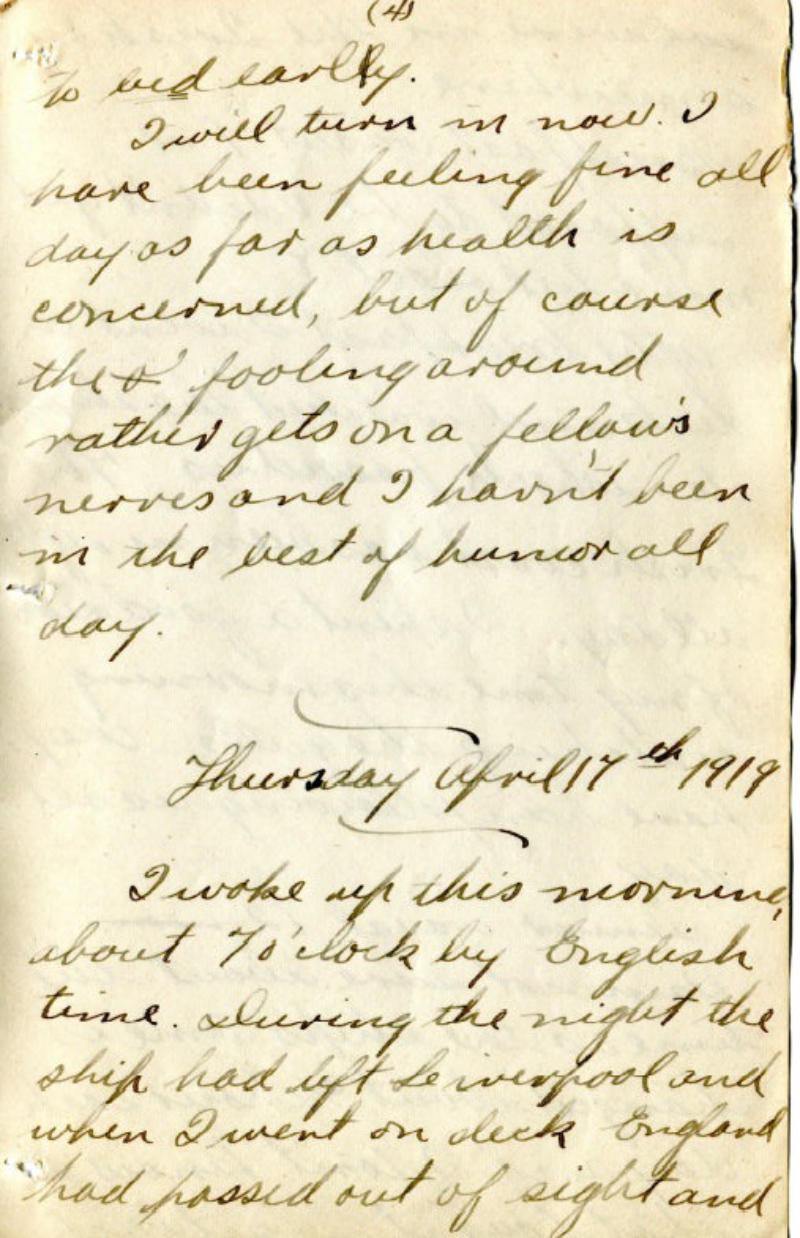 (4)
to bed early.
I will turn in now. I
have been feeling fine all
day as far as health is
concerned, but of course
the fooling around
rather gets on a fellow's
nerves and I havn't been
in the best of humor all
day.
Thursday April 17th 1919
I woke up this morning,
about 7 o'clock by English
time. During the night the
ship had left Leiverpool and
when I went on deck England
had passed out of sight and